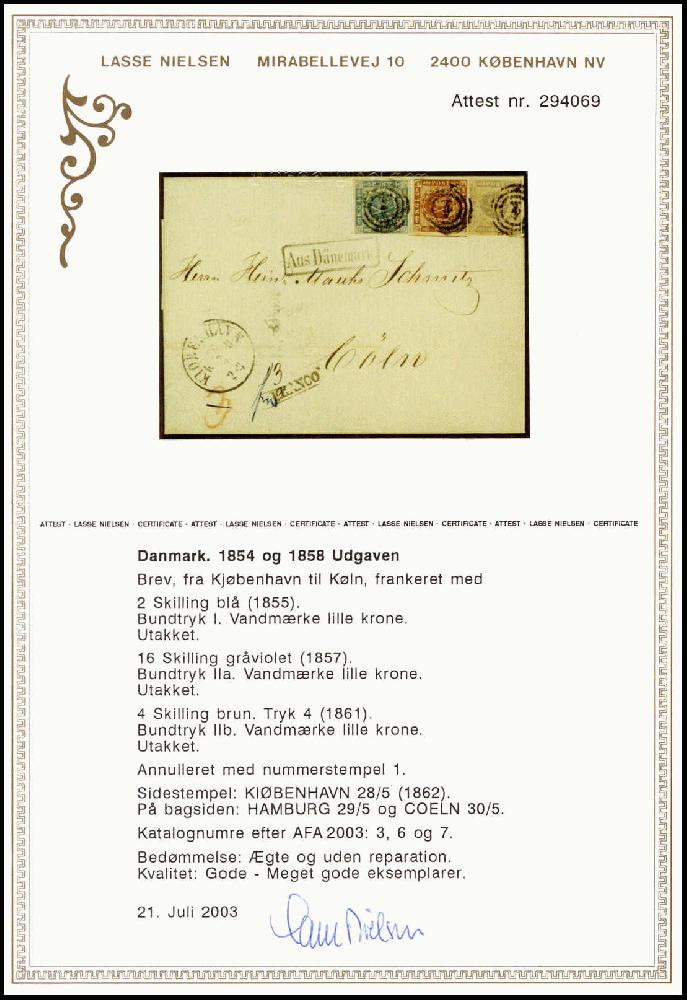 LASSE NIELSEN MIRABELLEVEJ 10 2400 KØBENHAVN NV
Attest nr. 294069
Aus Dänemark
Herrn Heinr. Schmitz
Cöln
FRANCO
ATTEST · LASSE NIELSEN · CERTIFICATE · ATTEST · LASSE NIELSEN · CERTIFICATE · ATTEST · LASSE NIELSEN · CERTIFICATE · ATTEST · LASSE NIELSEN · CERTIFICATE
Danmark. 1854 og 1858 Udgaven
Brev, fra Kjøbenhavn til Køln, frankeret med
2 Skilling blå (1855).
Bundtryk I. Vandmærke lille krone.
Utakket.
16 Skilling gråviolet (1857).
Bundtryk IIa. Vandmærke lille krone.
Utakket.
4 Skilling brun. Tryk 4 (1861).
Bundtryk IIb. Vandmærke lille krone.
Utakket.
Annulleret med nummerstempel 1.
Sidestempel: KIØBENHAVN 28/5 (1862).
På bagsiden: HAMBURG 29/5 og COELN 30/5.
Katalognumre efter AFA 2003: 3, 6 og 7.
Bedømmelse: Ægte og uden reparation.
Kvalitet: Gode - Meget gode eksemplarer.
21. Juli 2003
Lasse Nielsen